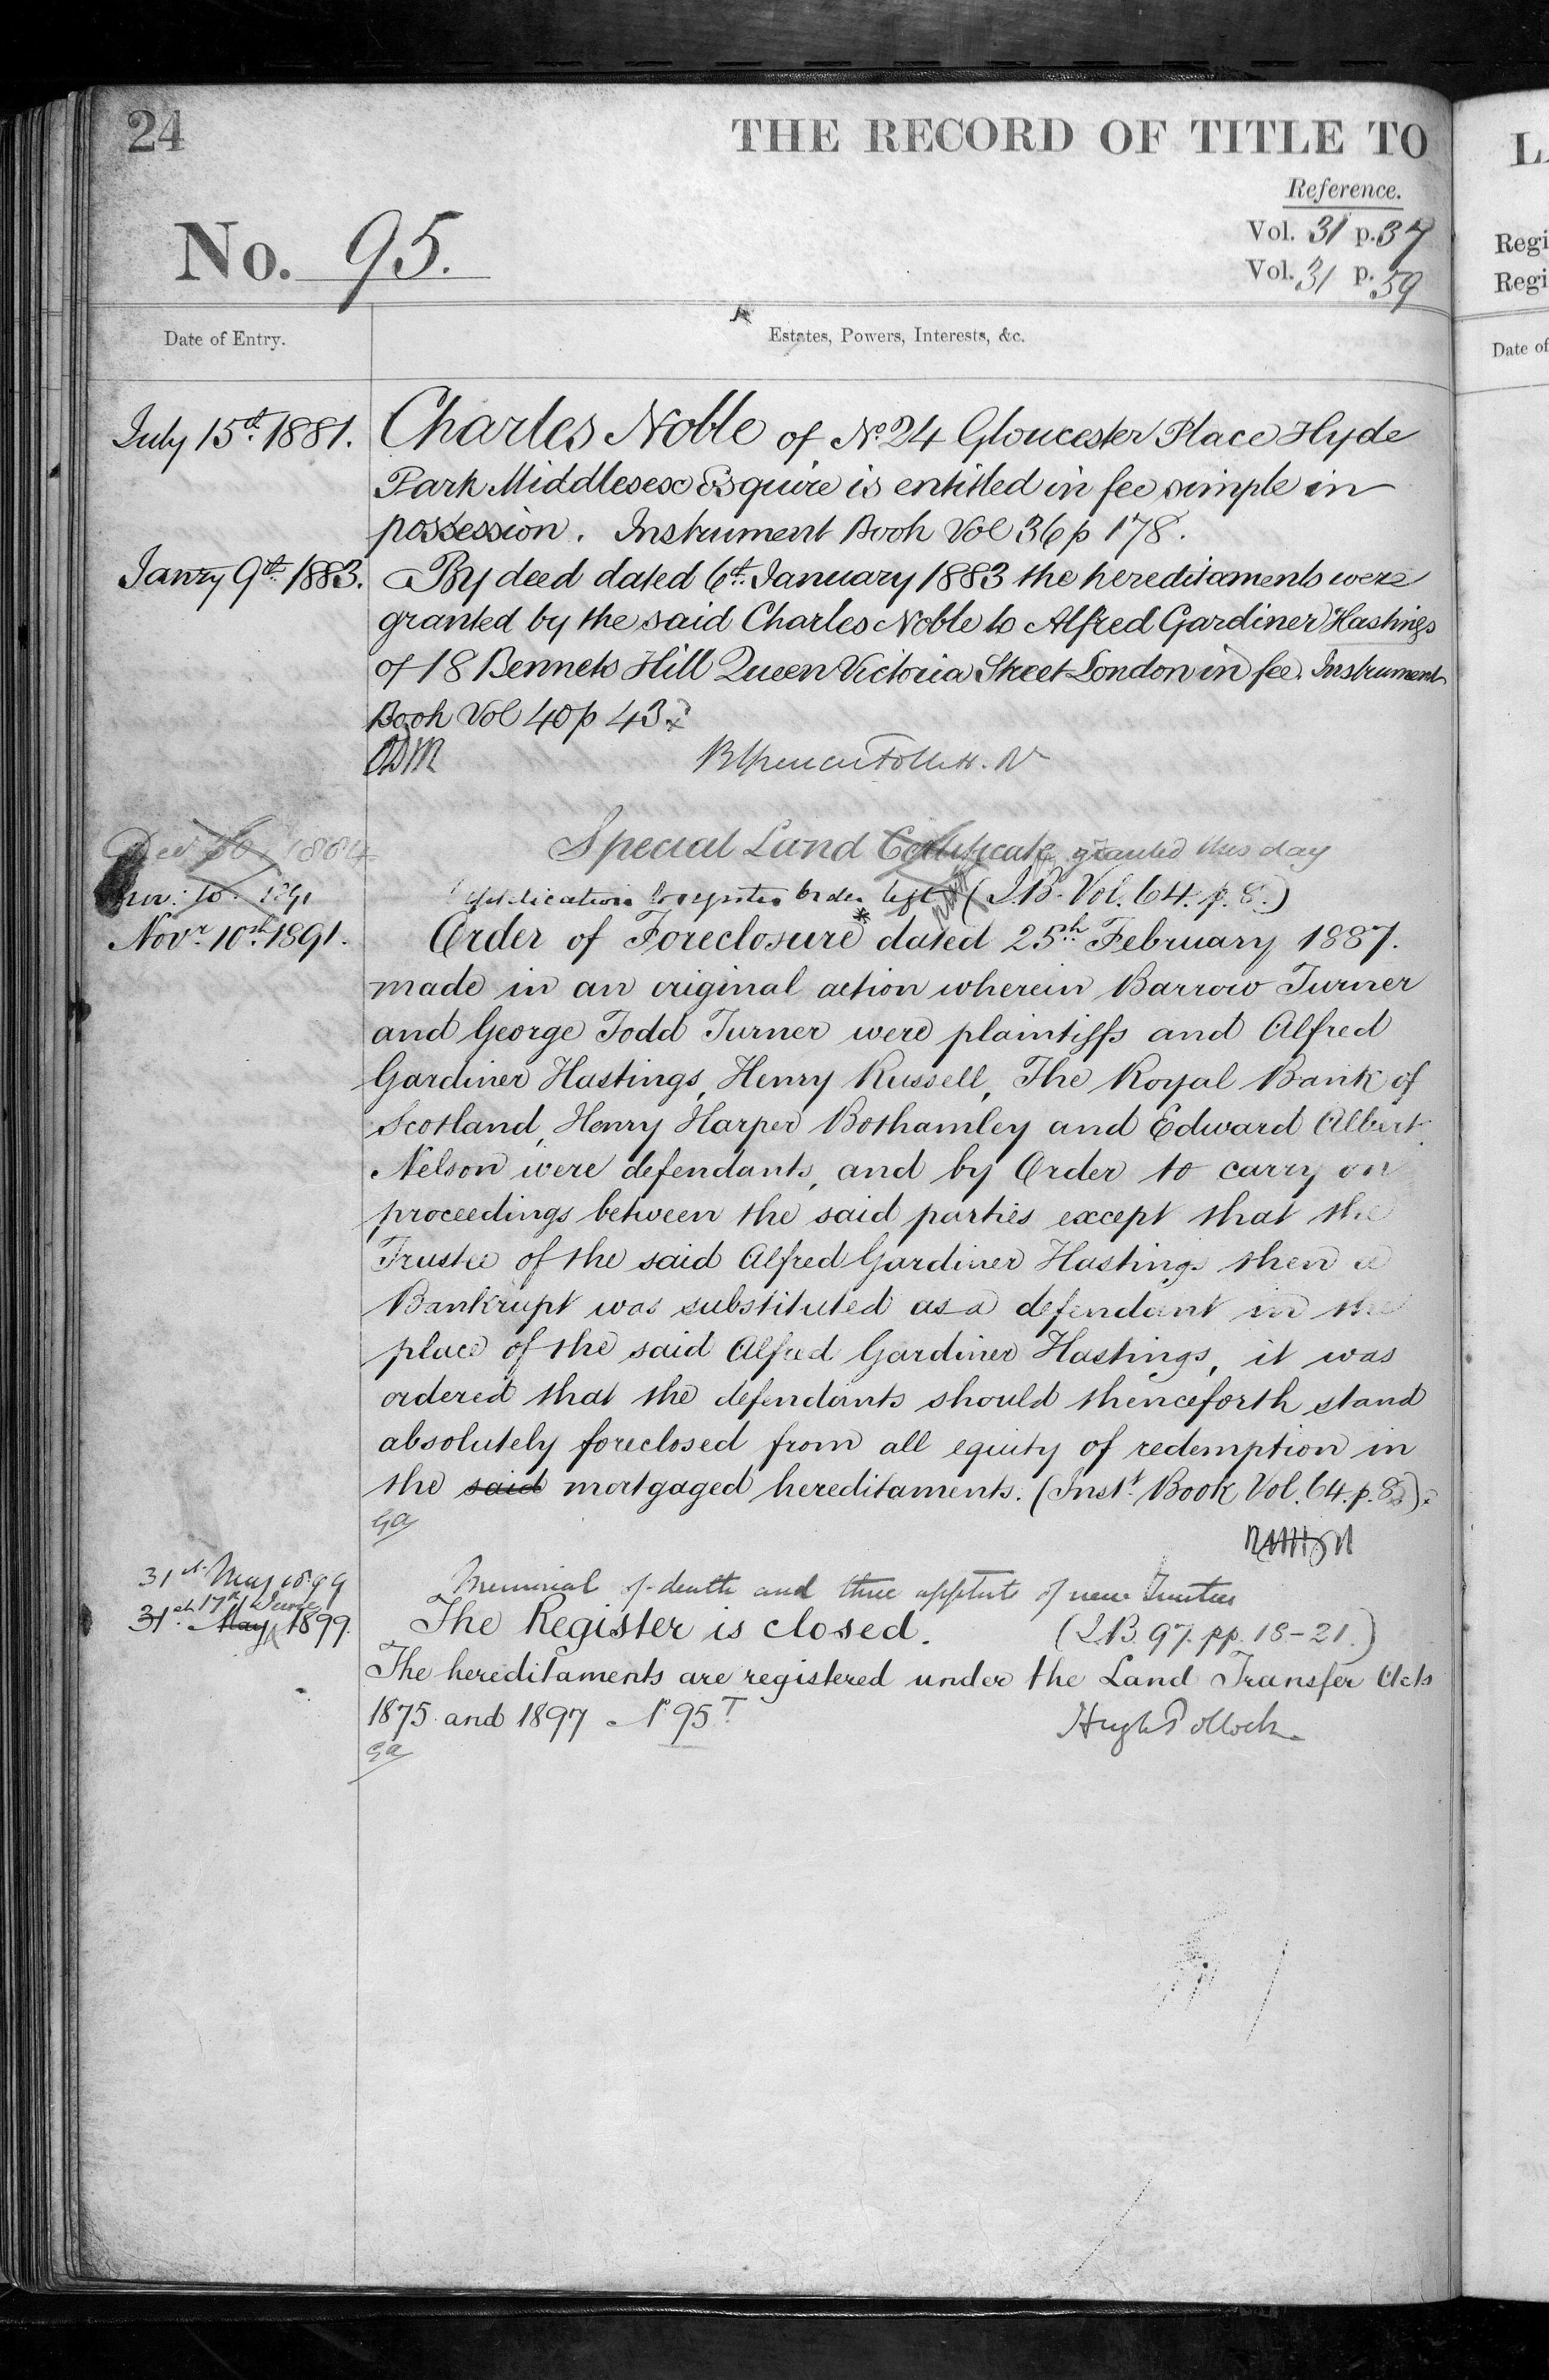 24
THE RECORD OF TITLE TO
Reference.
No. 95.
Vol. 31 p. 37
Vol. 31 p. 59
Date of Entry.
Estates, Powers, Interests, &c.
July 15th 1881.
Charles Noble of No. 24 Gloucester Place Hyde
Park Middlesex Esquire is entitled in fee simple in
possession. Instrument Book Vol 36 p 178.
Janry 9th 1883.
By deed dated 6th January 1883 the hereditaments were
granted by the said Charles Noble to Alfred Gardiner Hastings
of 18 Bennets Hill Queen Victoria Street London in fee. Instrument
Book Vol 40 p 43.
Dec 1884
Special Land Certificate granted this day
Nov: 10. 1891
Application to register Order left (I.B. Vol. 64. p. 8.)
Novr. 10th 1891.
Order of Foreclosure* dated 25th February 1887.
made in an original action wherein Barrow Turner
and George Todd Turner were plaintiffs and Alfred
Gardiner Hastings, Henry Russell, The Royal Bank of
Scotland, Henry Harper Bothamley and Edward Albert
Nelson were defendants, and by Order to carry on
proceedings between the said parties except that the
Trustee of the said Alfred Gardiner Hastings then a
Bankrupt was substituted as a defendant in the
place of the said Alfred Gardiner Hastings, it was
ordered that the defendants should thenceforth stand
absolutely foreclosed from all equity of redemption in
the said mortgaged hereditaments. (Inst. Book Vol. 64. p. 8.)
GA
31st May 1899
Memorial of death and three apptmts of new Trustees
17th June
31st May 1899.
The Register is closed.
(I.B. 97. pp. 18-21.)
The hereditaments are registered under the Land Transfer Acts
1875 and 1897 No. 95T.
Hugh Pollock
GA
L
Regi
Regi
Date of